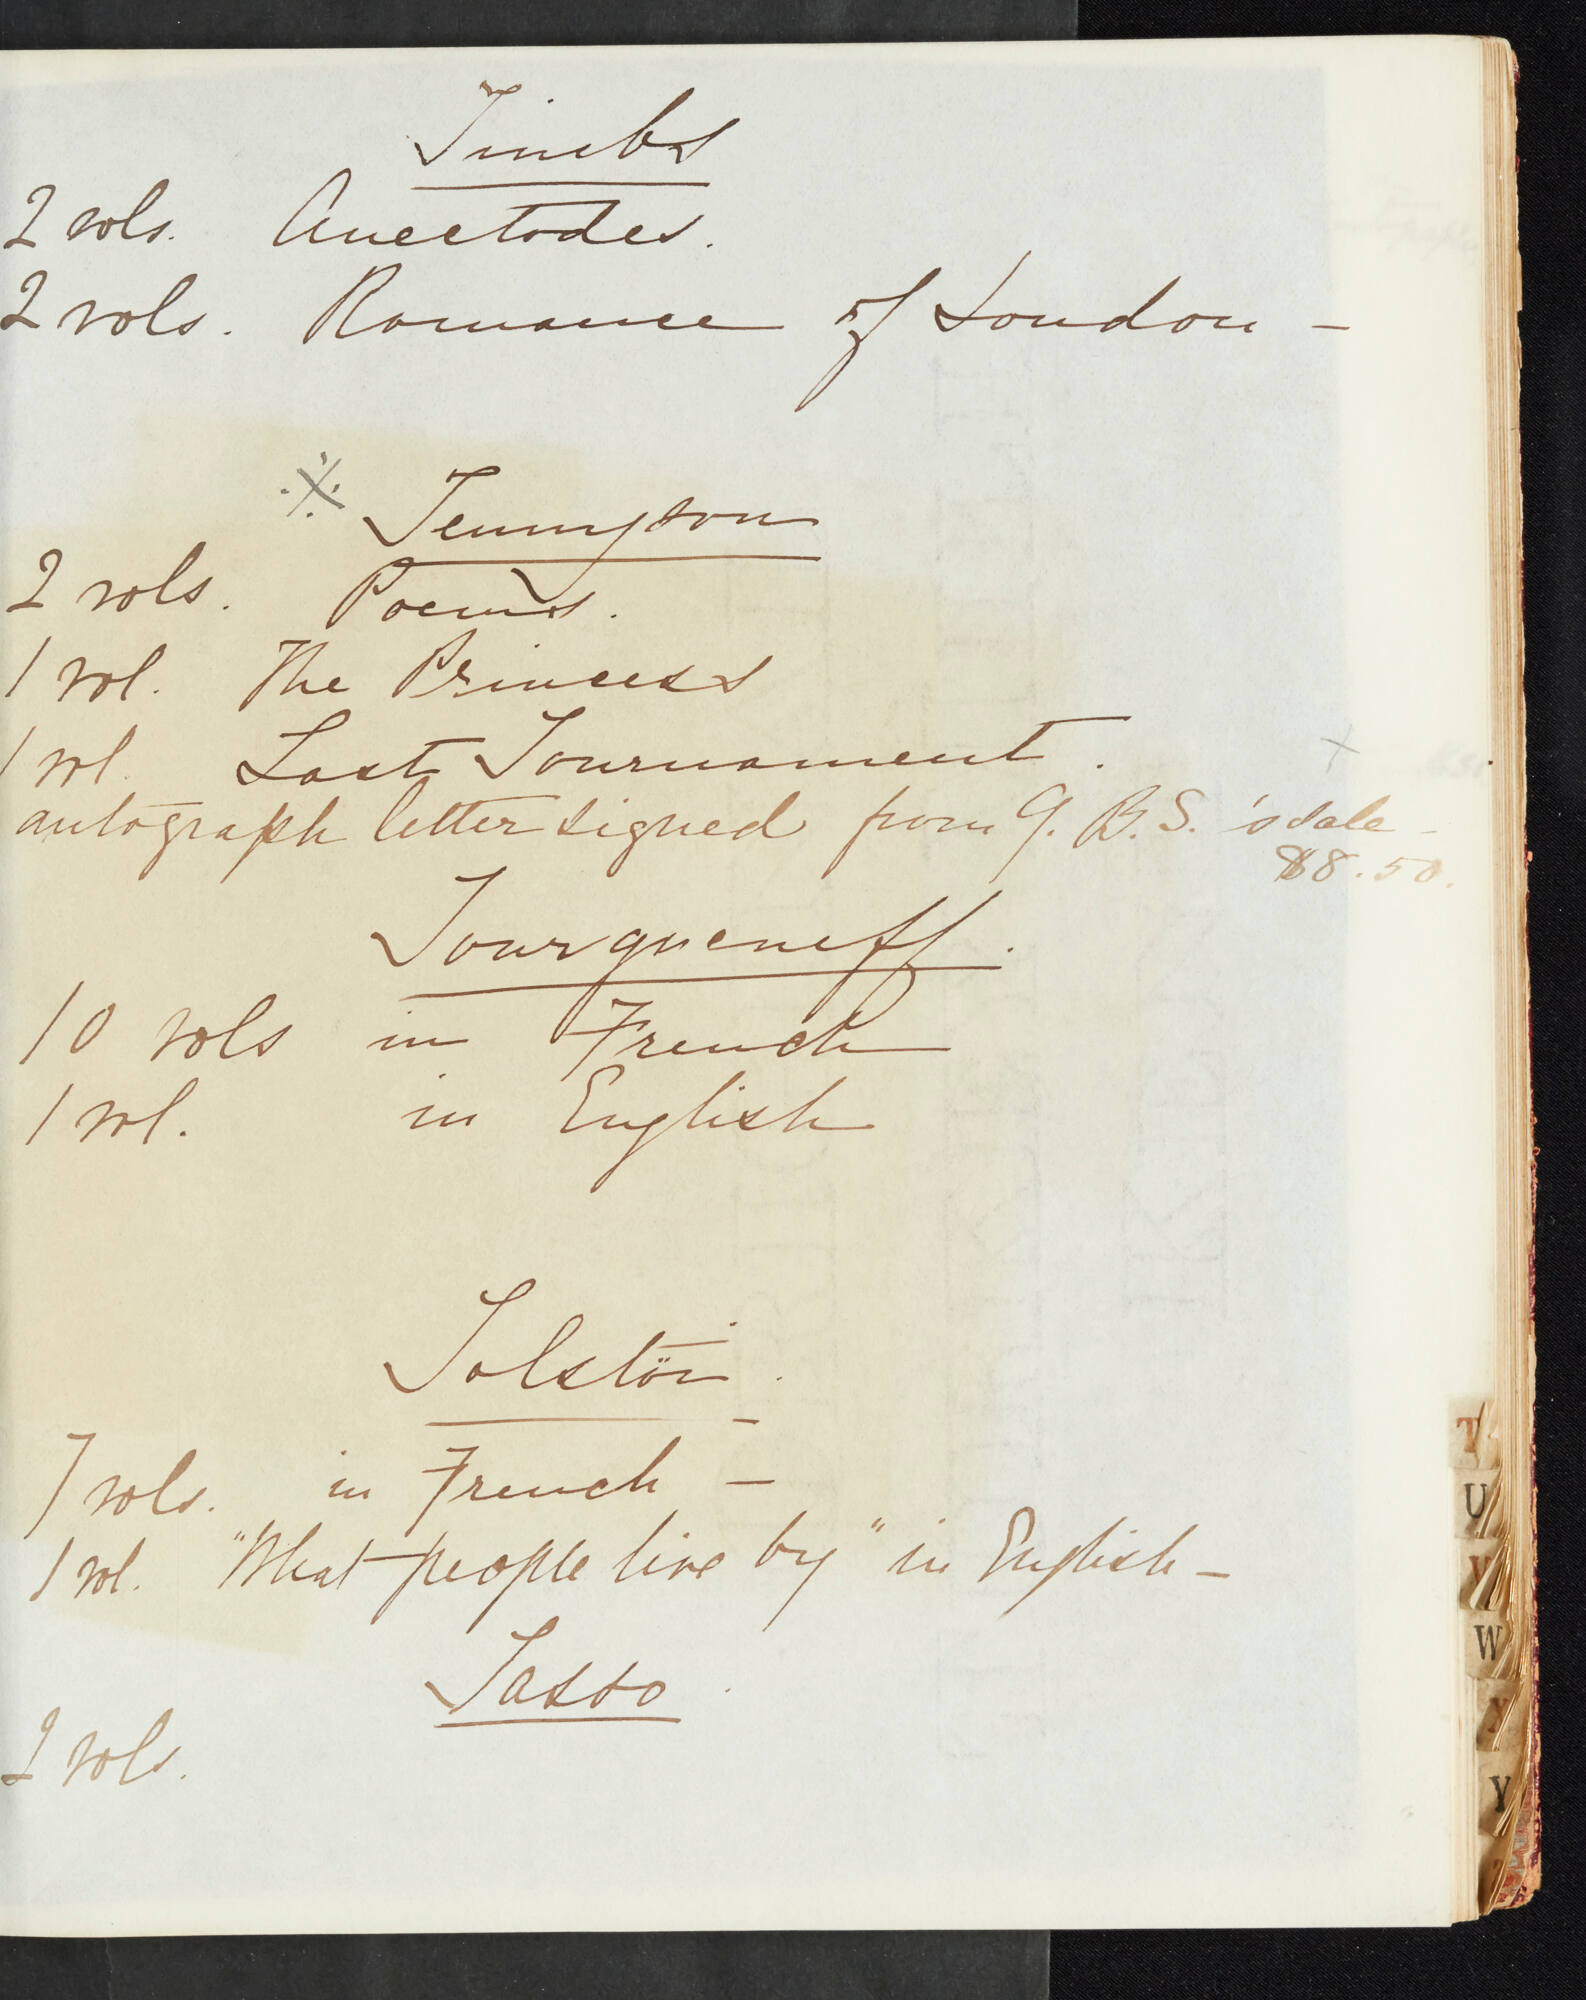 Timbs
2 vols. Anectodes.
2 vols. Romance of London –
※ Tennyson
2 vols. Poems.
1 vol. The Princess
1 vol. Last Tournament.
autograph letter signed from G. B. S.'s sale –
$8.50.
Tourgueneff.
10 vols in French
1 vol. in English
Tolstöi.
7 vols. in French –
1 vol. "What people live by" in English –
Tasso.
2 vols.
T
U
V
W
X
Y